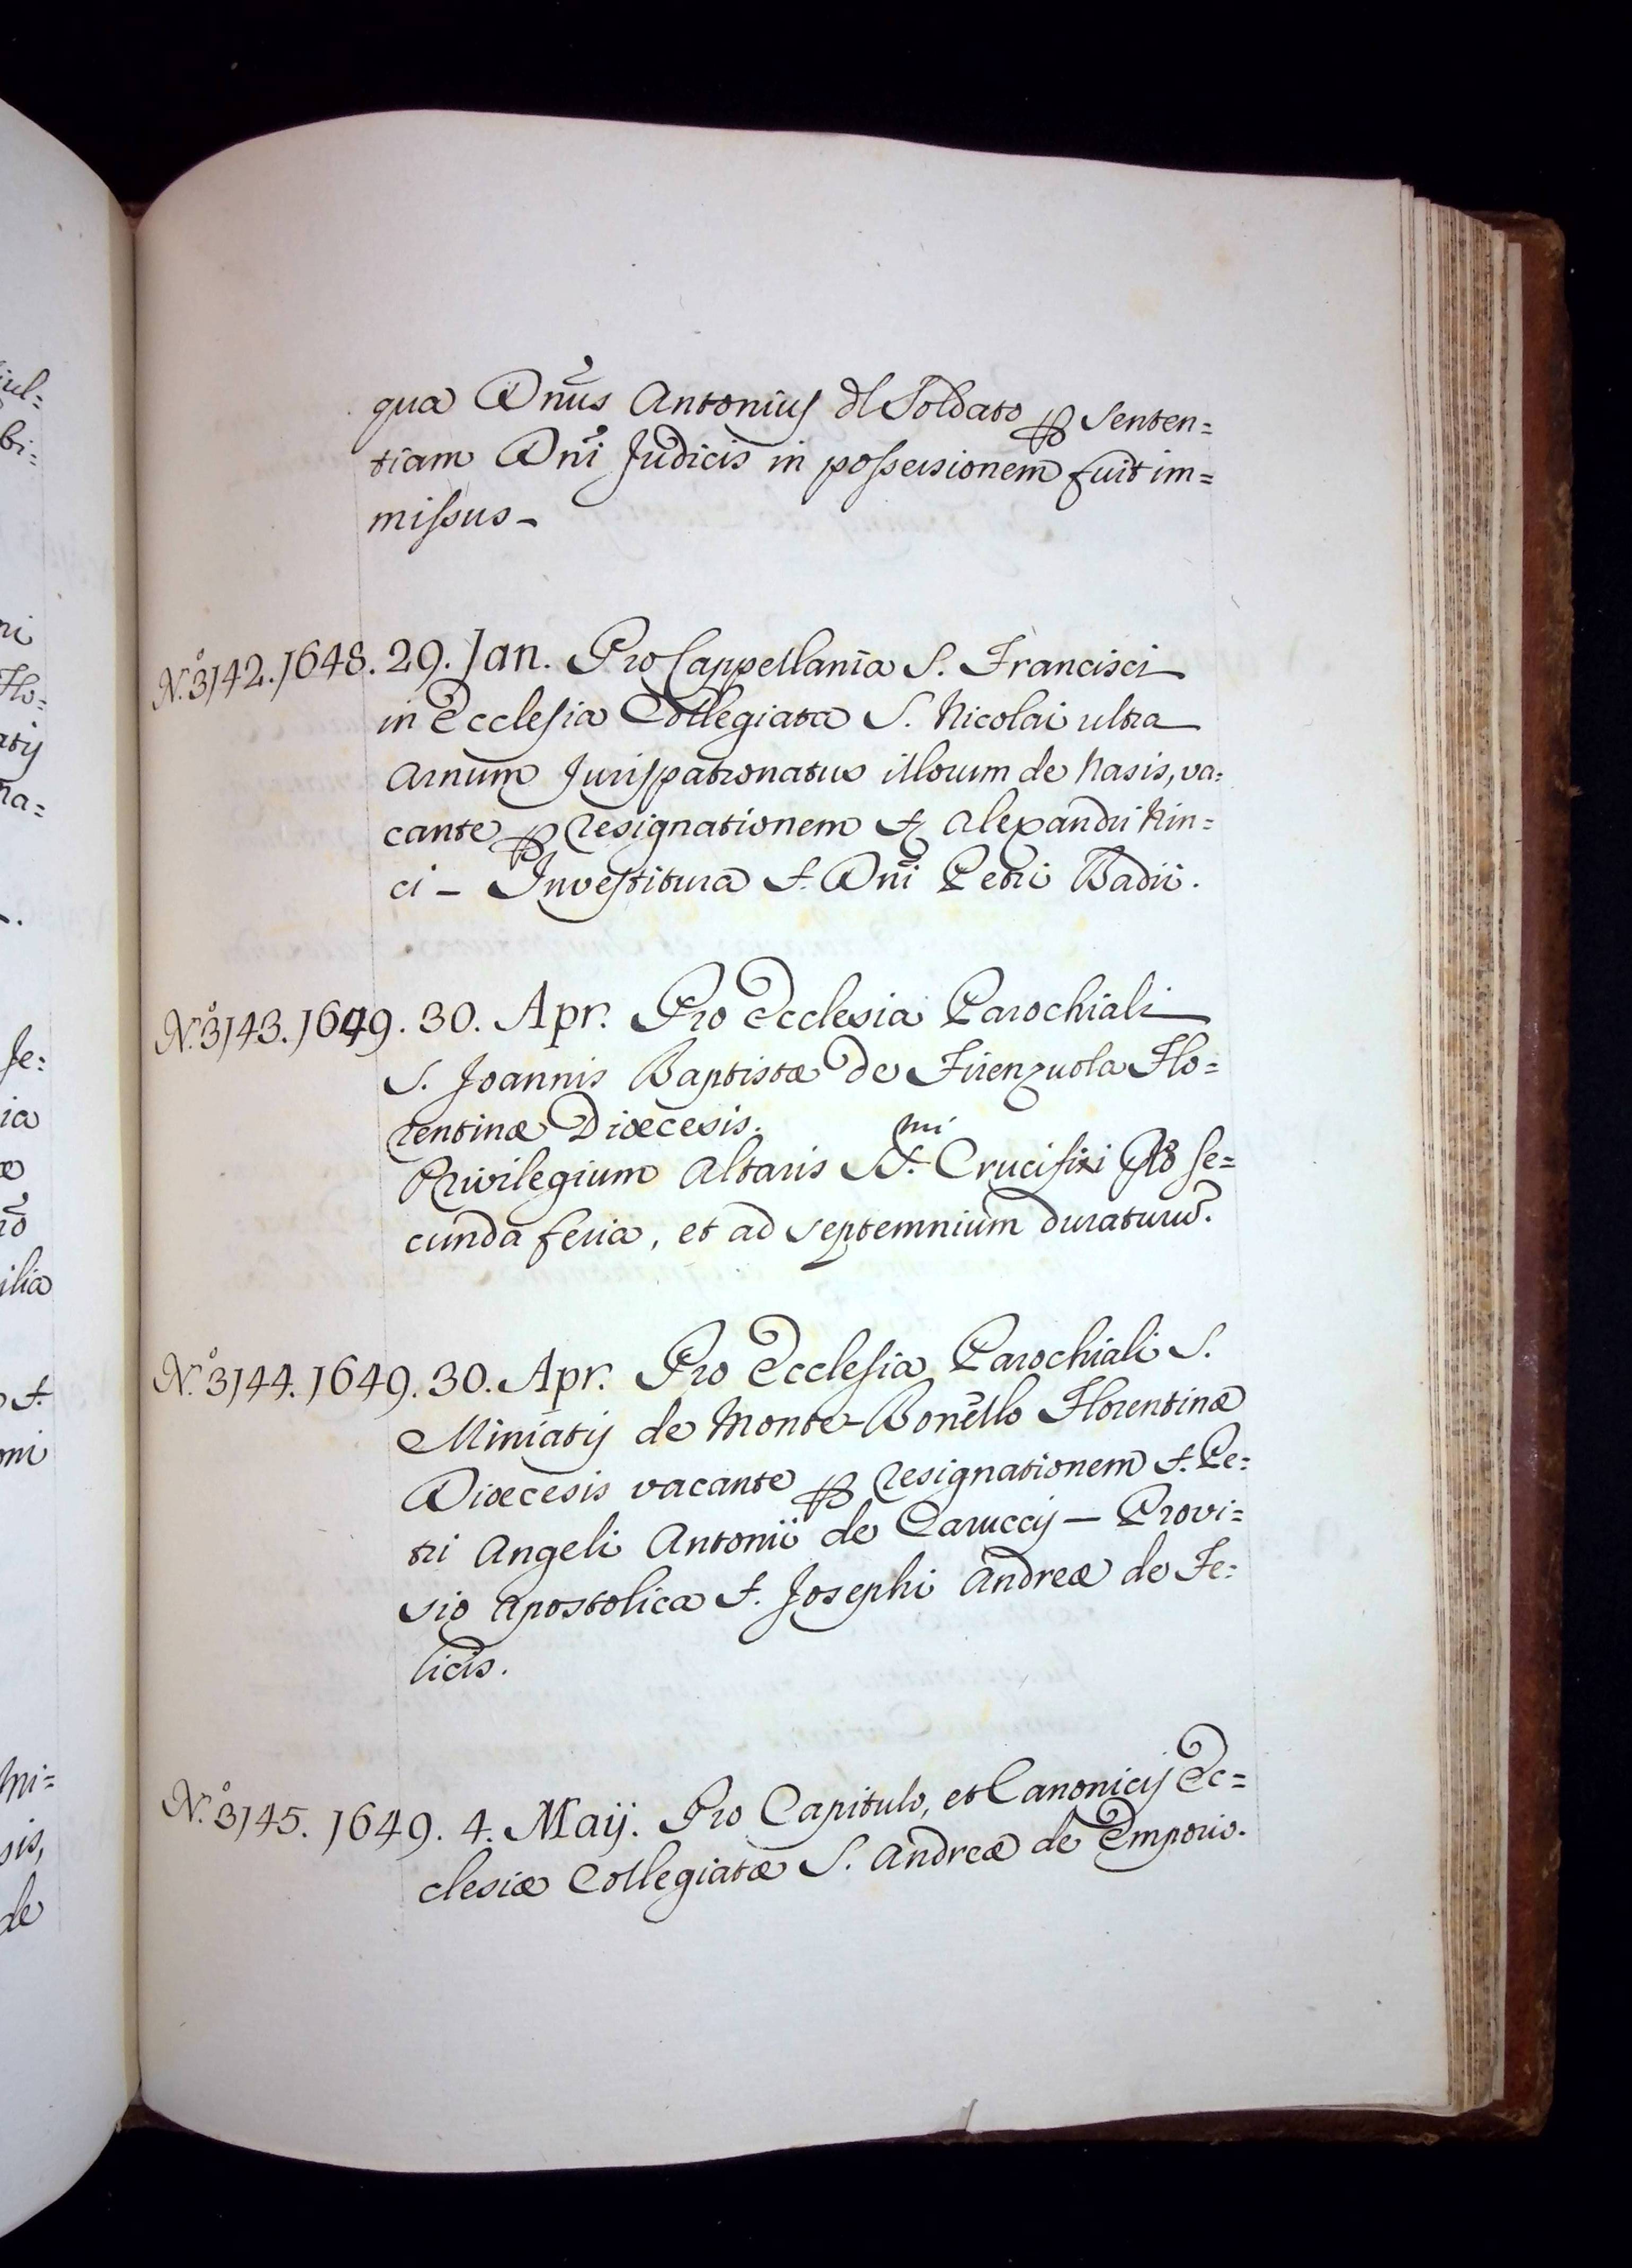 qua Dñus Antonius dl Soldato ꝑ senten=
tiam Dñi Judicis in possessionem fuit im=
missus –
N.º 3142. 1648. 29. Jan. Pro Cappellania S. Francisci
in Ecclesia Collegiata S. Nicolai ultra
Arnum Jurispatronatus illorum de Nasis, va=
cante ꝑ resignationem f. Alexandri Nin=
ci – Investitura f. Dñi Petri Badii.
N.º 3143. 1649. 30. Apr. Pro Ecclesia Parochiali
S. Joannis Baptistæ de Firenzuola Flo=
rentinæ Diœcesis.
Privilegium Altaris SS.mi Crucifixi pro se=
cunda feria, et ad septemnium duraturũ.
N.º 3144. 1649. 30. Apr. Pro Ecclesia Parochiali S.
Miniatij de Monte-Bonello Florentinæ
Diœcesis vacante ꝑ resignationem f. Pe=
tri Angeli Antonii de Caruccij – Provi=
sio Apostolica f. Josephi Andreæ de Fe=
licis.
N.º 3145. 1649. 4. Maij. Pro Capitulo, et Canonicij Ec=
clesiæ Collegiatæ S. Andreæ de Emporio.